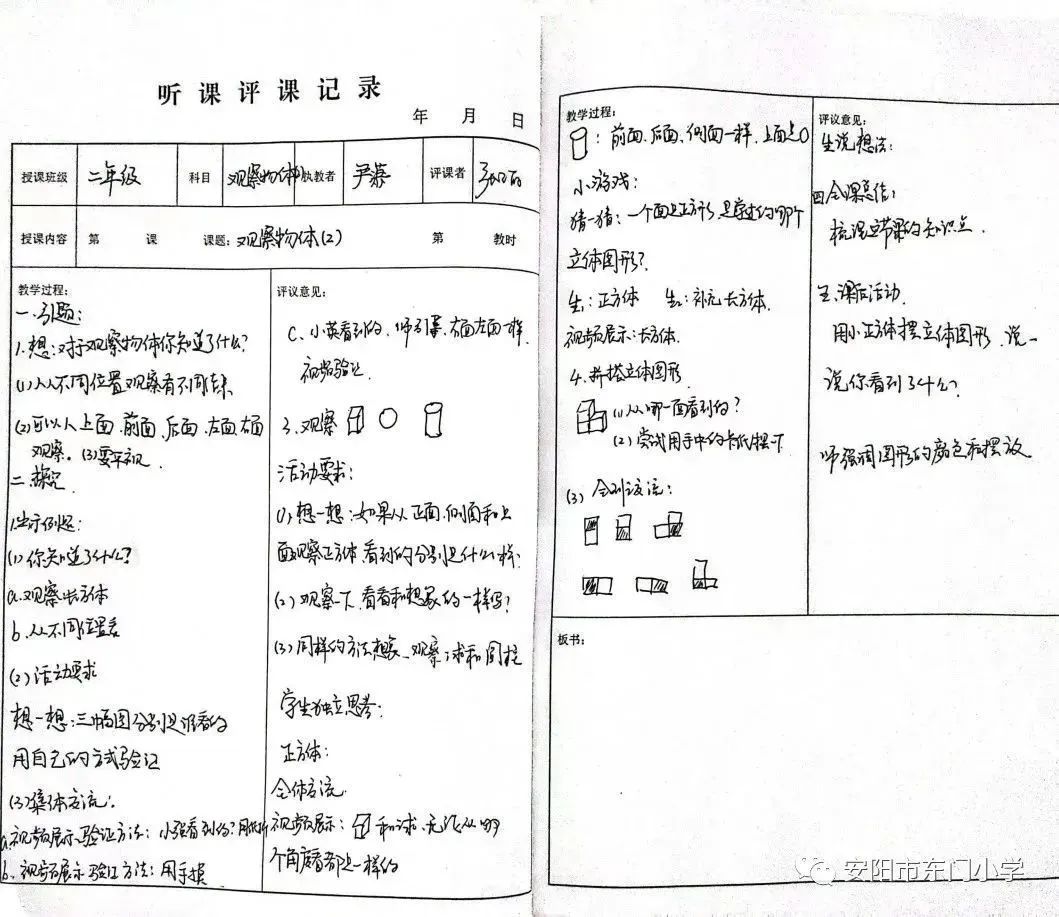 听课评课记录
年 月 日
授课班级 二年级 科目 观察物体 执教者 尹 评课者
授课内容 第 课 课题:观察物体(2) 第 教时
教学过程:
一.引题:
1.想:对于观察物体你知道了什么?
(1)从不同位置观察有不同结果
(2)可以从上面.前面.后面.左面.右面
观察。(3)要平视.
二.探究
1.出示例题:
(1)你知道了什么?
a.观察长方体
b.从不同位置看
(2)活动要求
想一想:三幅图分别是谁看的
用自己的方式验证
(3)集体交流:
a.视频展示.验证方法:小强看到的?用
b.视频展示 验证方法:用手摸
评议意见:
C.小英看到的.师引导.右面左面一样.
视频验证.
3.观察
活动要求:
(1)想一想:如果从正面.侧面和上
面观察正方体.看到的分别是什么样.
(2)观察一下.看看和想象的一样吗?
(3)同样的方法想象、观察:球和圆柱
学生独立思考:
正方体:
全体交流.
视频展示: 和球.无论从哪
个角度看都是一样的
教学过程:
:前面.后面.侧面一样.上面是O
小游戏:
猜一猜:一个面是正方形.是学过的哪个
立体图形?
生:正方体 生:补充长方体.
视频展示:长方体.
4.拼搭立体图形
(1)从哪一面看到的?
(2)尝试用手中的卡纸摆一下
(3)全班交流:
评议意见:
生说想法:
四.全课总结:
梳理这节课的知识点.
五.课后活动.
用小正方体摆立体图形.说一
说你看到了什么?
师强调图形的颜色和摆放
板书:
安阳市东门小学